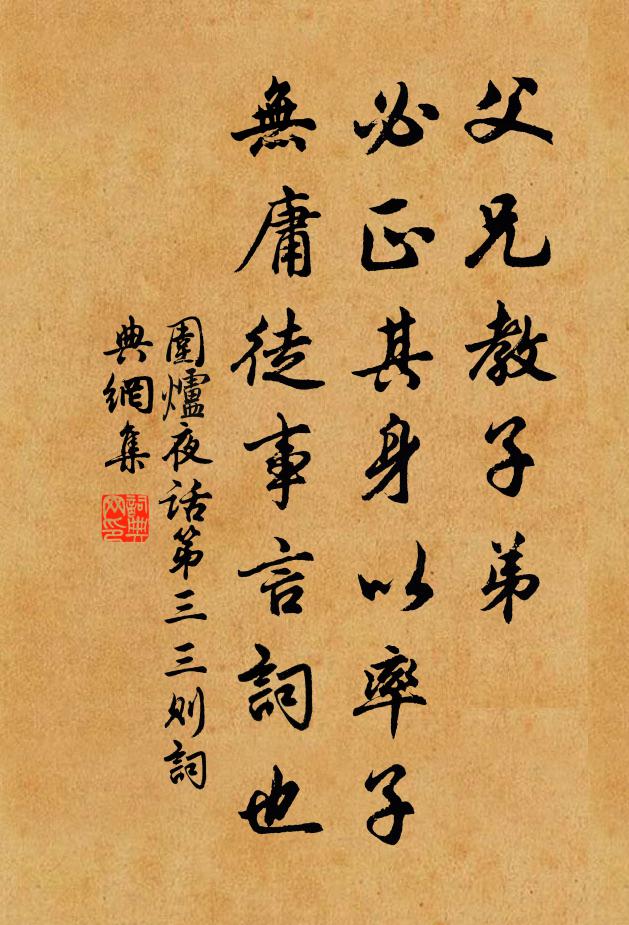 父兄教子弟
必正其身以率子
無庸徒事言詞也
圍爐夜话第三三则詞
典網集
詞典網印